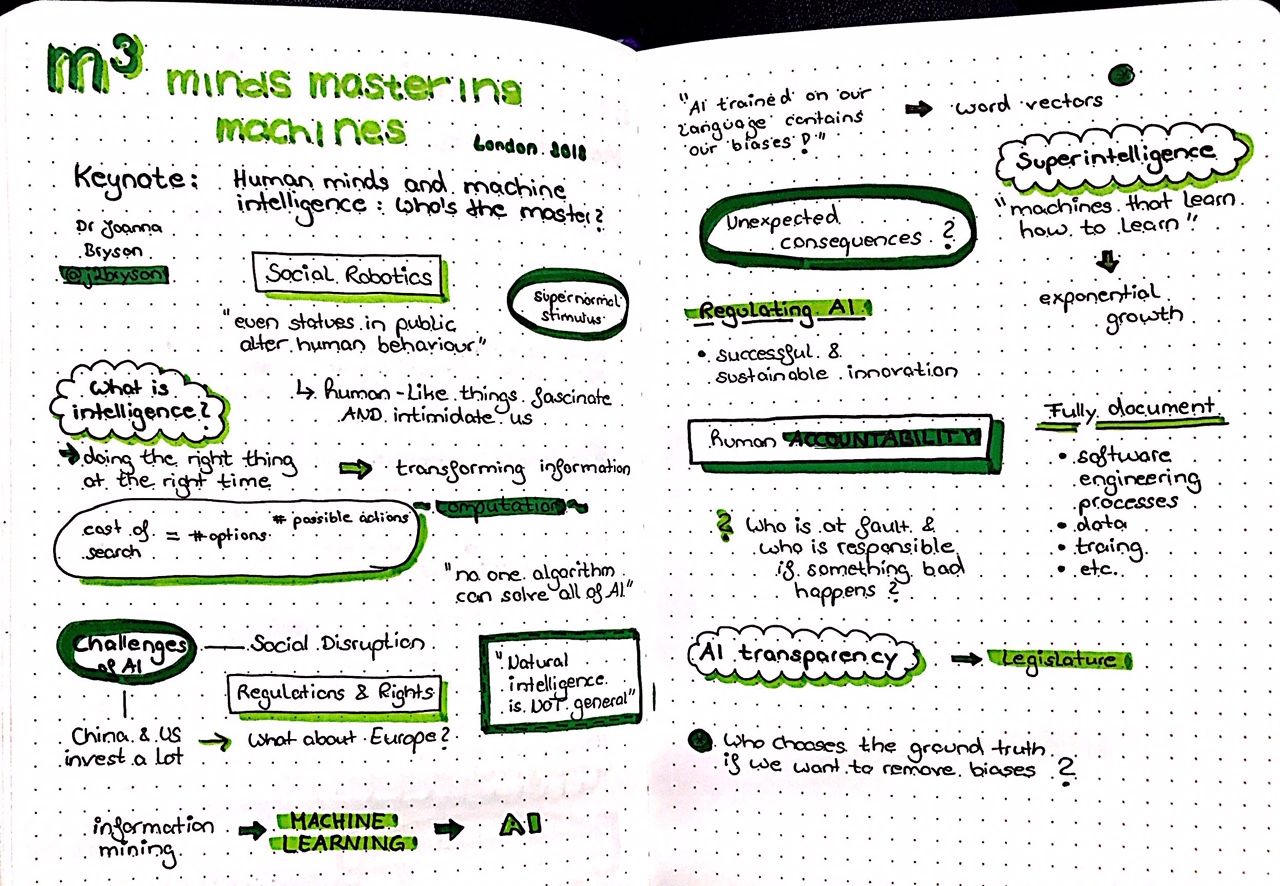 m³ minds mastering
machines
London 2018
Keynote: Human minds and machine
intelligence: Who's the master?
Dr Joanna
Bryson
@j2bryson
Social Robotics
supernormal
stimulus
"even statues in public
alter human behaviour"
↳ human-like things fascinate
AND intimidate us
What is
intelligence?
→ doing the right thing
at the right time
⇒ transforming information
~ computation ~
cost of
search = #options # possible actions
"no one algorithm
can solve all of AI"
Challenges
of AI
Social Disruption
Regulations & Rights
"Natural
intelligence
is NOT general"
China & US
invest a lot
→ What about Europe?
information
mining
→ MACHINE
LEARNING → AI
"AI trained on our
language contains
our biases!"
→ word vectors
Superintelligence
"machines that learn
how to learn"
↓
exponential
growth
Unexpected
consequences ?
Regulating AI
• successful &
sustainable innovation
human ACCOUNTABILITY
Fully document
• software
engineering
processes
• data
• traing
• etc.
? Who is at fault &
who is responsible
if something bad
happens ?
AI transparency → Legislature
Who chooses the ground truth
if we want to remove biases ?